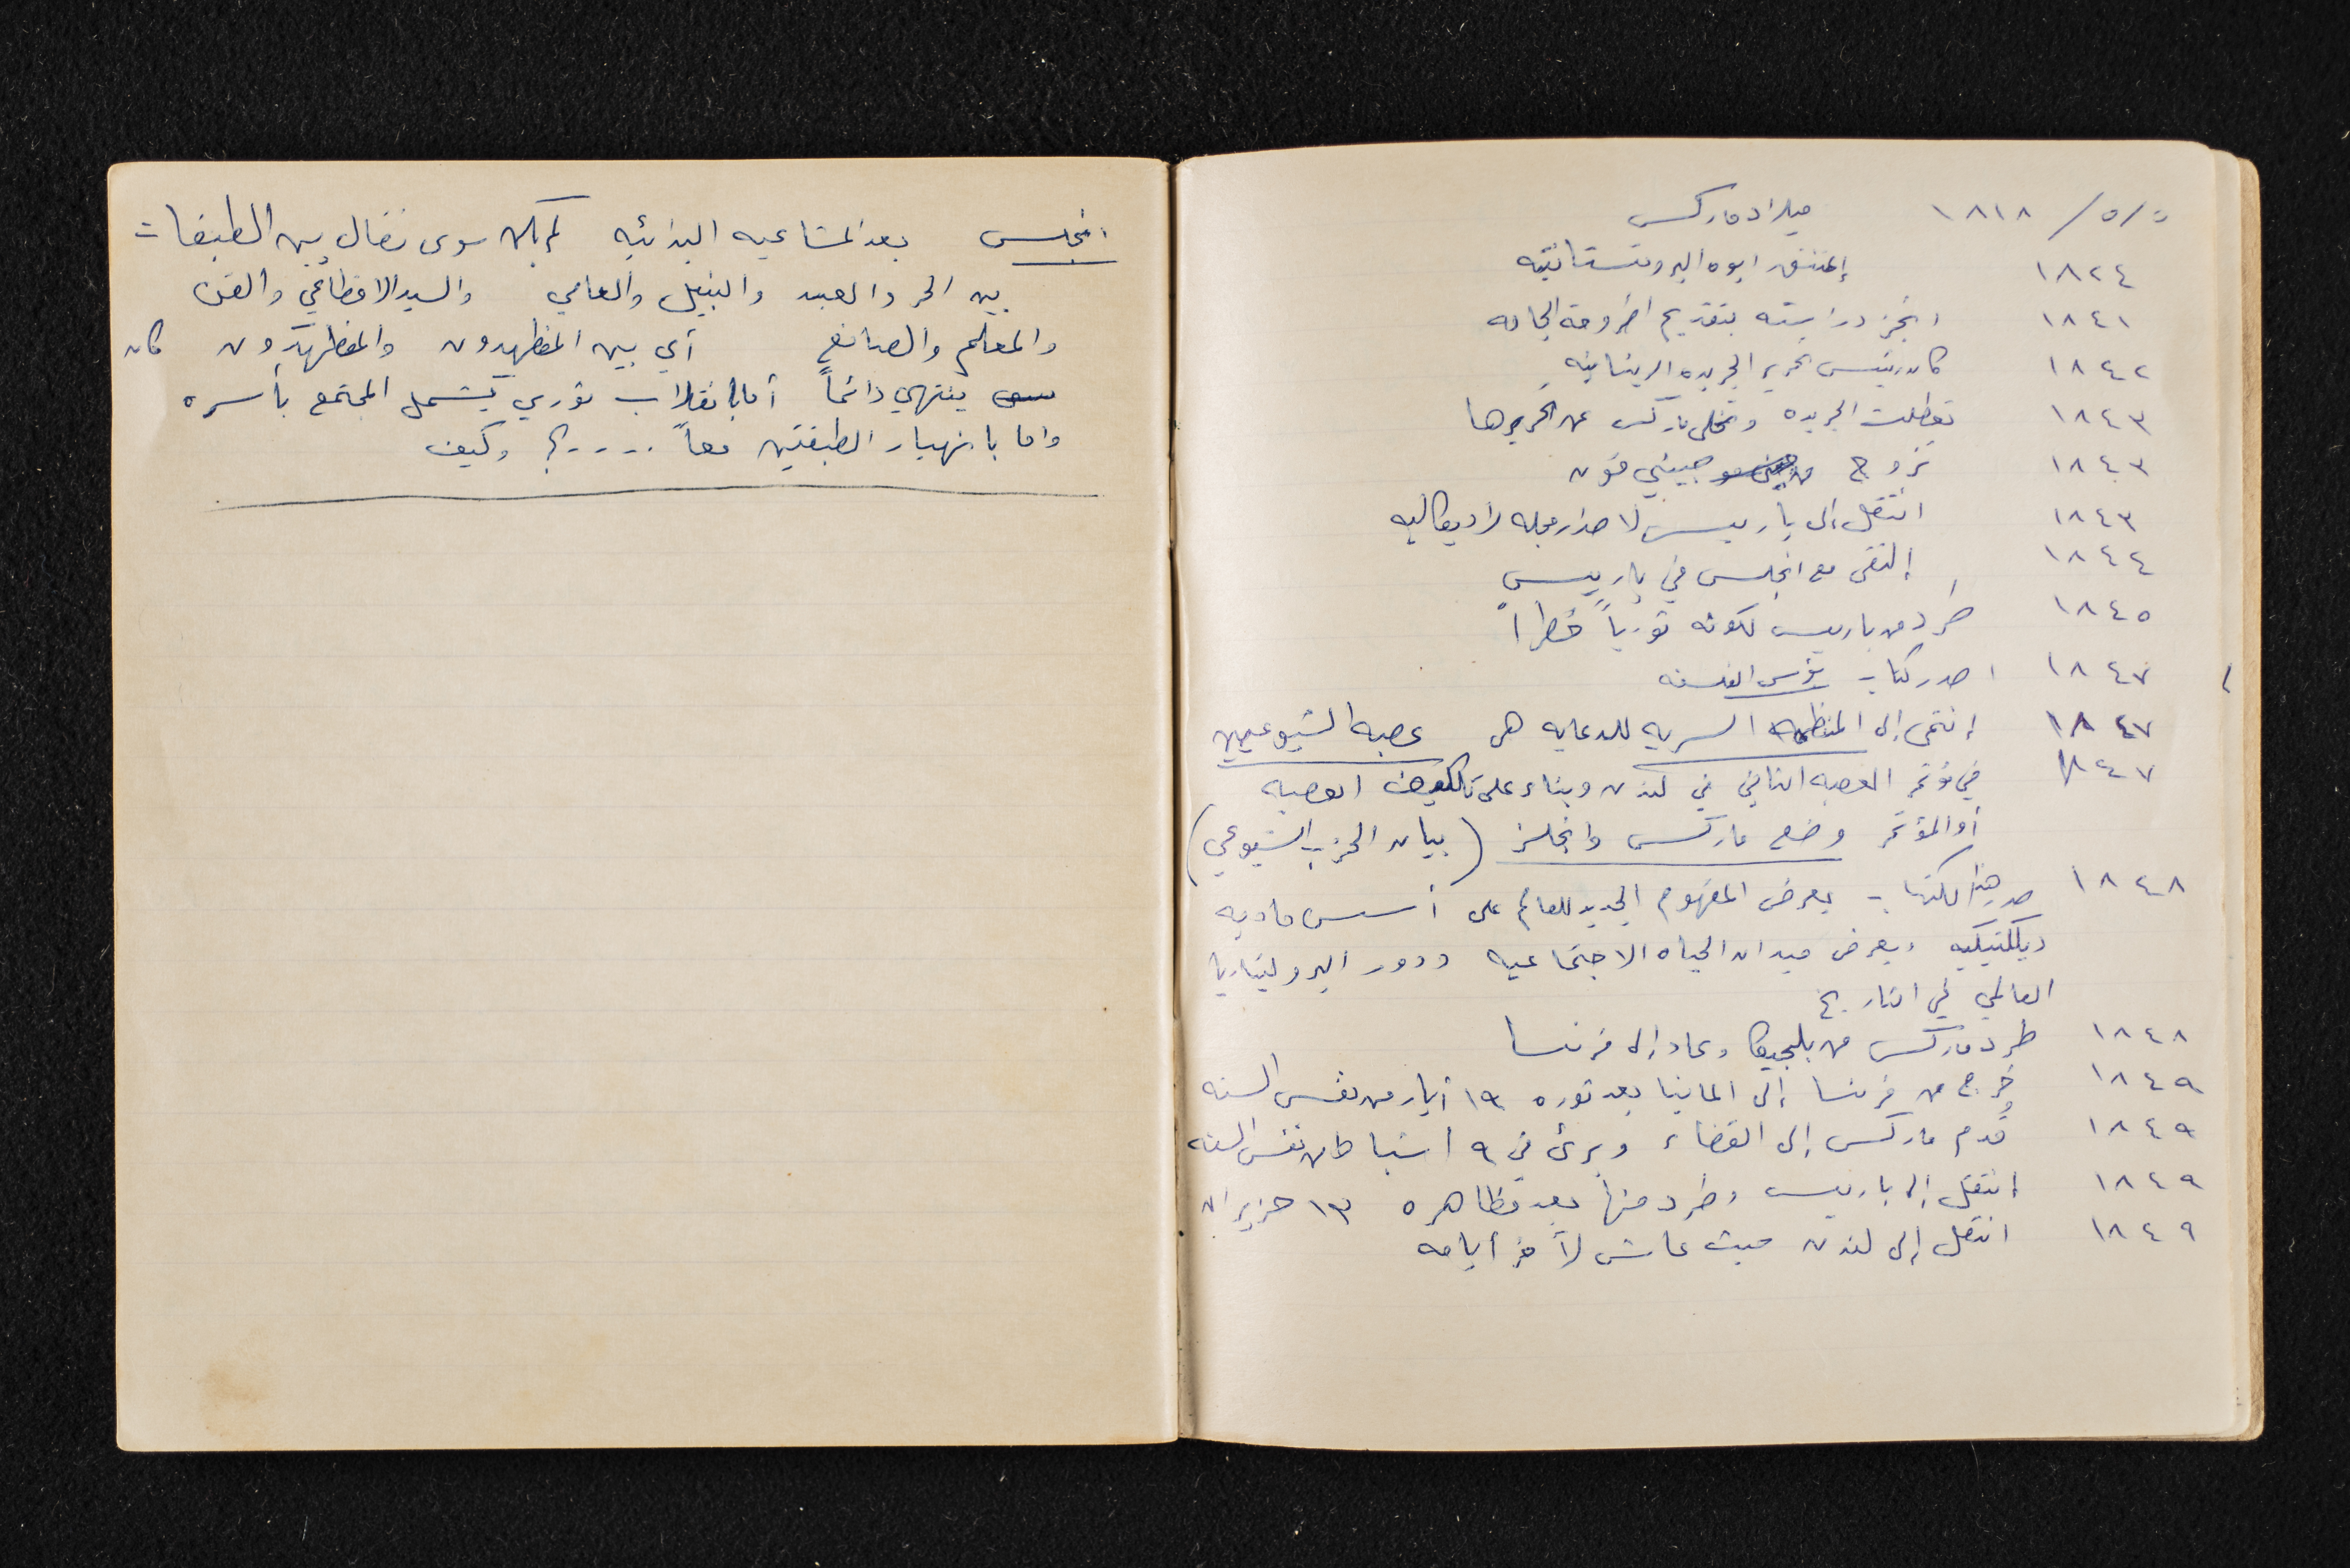 ٥/٥/١٨١٨ ميلاد ماركس
١٨٢٤ إعتنق ابوه البروتستانتيه
١٨٤١ انجز دراسته بتقديم اطروحة الجامعه
١٨٤٢ كان رئيس تحرير الجريده الرينانيه
١٨٤٣ تعطلت الجريده وتخلى ماركس عن تحريرها
١٨٤٣ تزوج من جيني فون
١٨٤٣ انتقل الى باريس لاصدار مجله راديكاليه
١٨٤٤ إلتقى مع انجلس في باريس
١٨٤٥ طُرد من باريس لكونه ثورياً خطراً
١٨٤٧ اصدر كتاب بؤس الفلسفه
١٨٤٧ إنتمى إلى المنظمه السريه للدعايه هي عصبه الشيوعيين
١٨٤٧ في مؤتمر العصبه الثاني في لندن وبناء على تكليف العصبه
أو المؤتمر وضع ماركس وانجلز (بيان الحزب الشيوعي)
١٨٤٨ صدر هذا الكتاب يعرض المفهوم الجديد للعالم على أسس ماديه
ديلكتيكيه ويعرض ميدان الحياه الاجتماعيه ودور البروليتاريا
العالمي في التاريخ
١٨٤٨ طرد ماركس من بلجيكا وعاد إلى فرنسا
١٨٤٩ خرج من فرنسا إلى المانيا بعد ثوره ١٩ أيار من نفس السنه
١٨٤٩ قُدم ماركس إلى القضاء وبرئ في ٩ اشباط من نفس السنه
١٨٤٩ إنتقل إلى باريس وطرد منها بعد مظاهره ١٣ حزيران
١٨٤٩ انتقل إلى لندن حيث عاش لآخر أيامه
انجلس بعد المشاعيه البدائيه لم يكن سوى نضال بين الطبقات
بين الحر والعبد والنبيل والعامي والسيد الاقطاعي والقن
والمعلم والصانع أي بين المظهدون والمظهَدون كان
ينتهي دائماً أما بانقلاب ثوري يشمل المجتمع بأسره
واما بانهيار الطبقتين معاً ....؟ وكيف